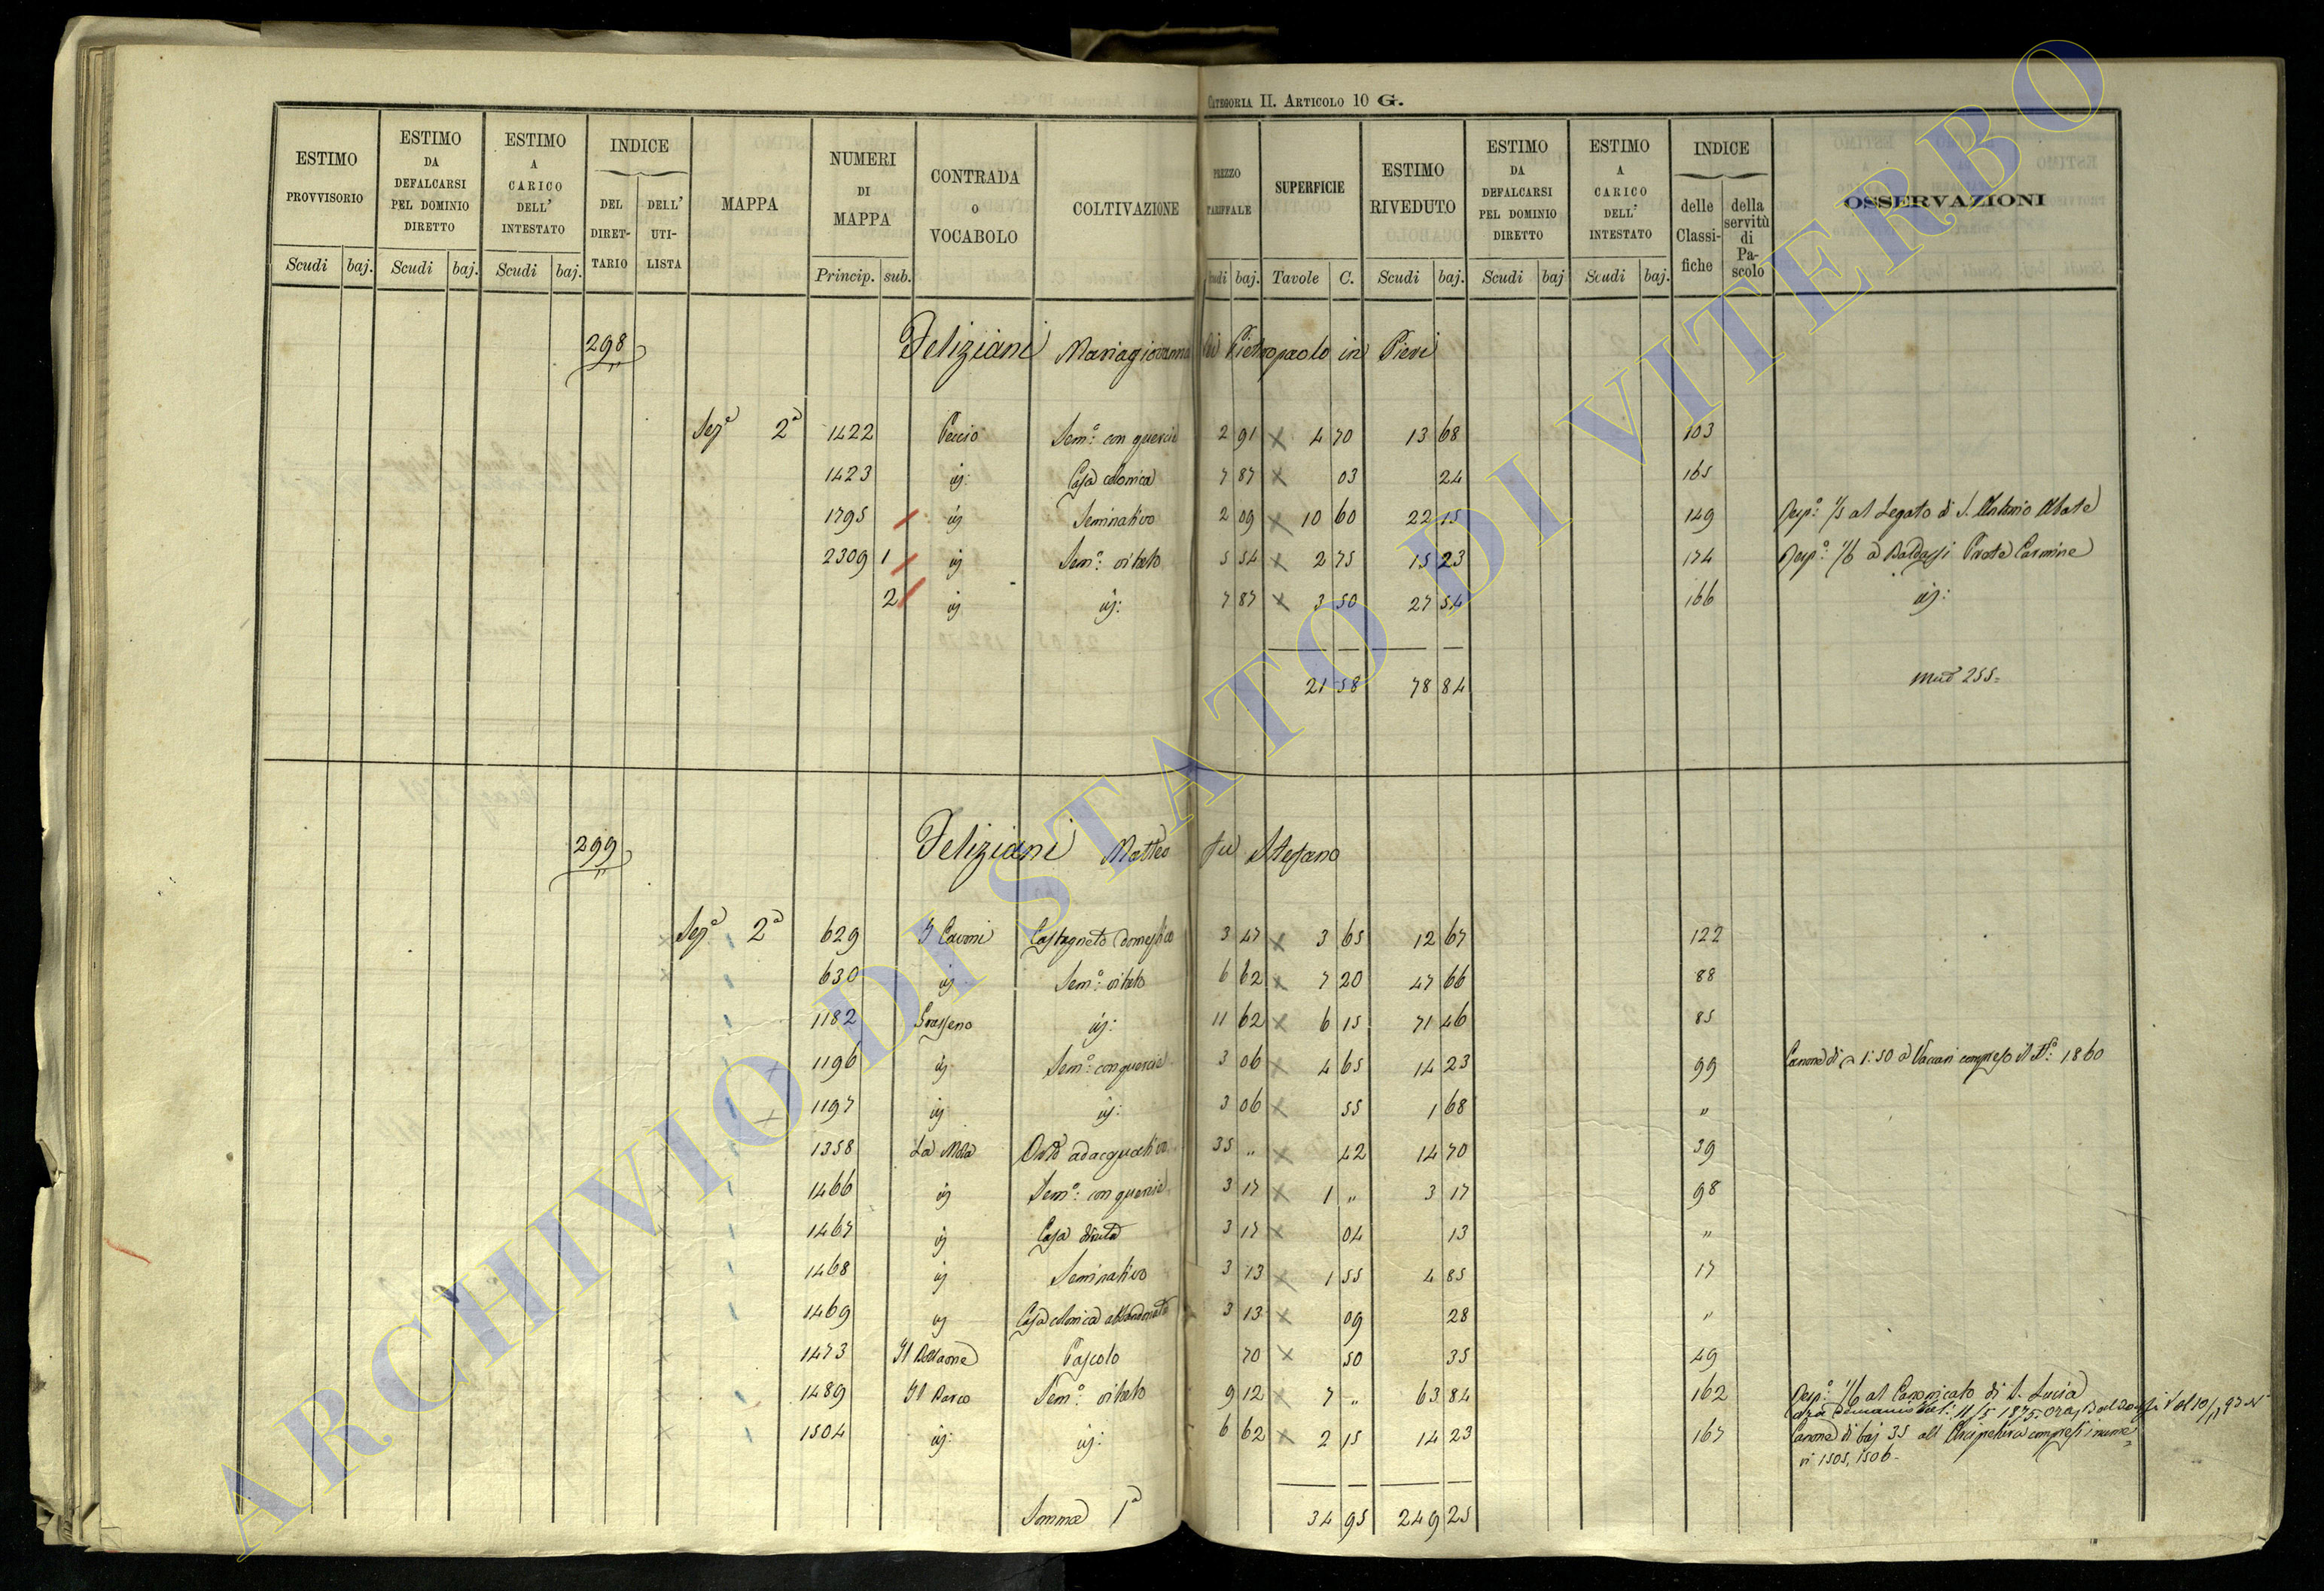 CATEGORIA II. ARTICOLO 10 G.
ESTIMO PROVVISORIO | ESTIMO DA DEFALCARSI PEL DOMINIO DIRETTO | ESTIMO A CARICO DELL' INTESTATO | INDICE DEL DIRETTARIO | DELL' UTILISTA | MAPPA | NUMERI DI MAPPA | CONTRADA O VOCABOLO | COLTIVAZIONE | PREZZO TARIFFALE | SUPERFICIE | ESTIMO RIVEDUTO | ESTIMO DA DEFALCARSI PEL DOMINIO DIRETTO | ESTIMO A CARICO DELL' INTESTATO | INDICE delle Classifiche | della servitù di Pascolo | OSSERVAZIONI
Scudi baj. Scudi baj. Scudi baj. Princip. sub. baj. Tavole C. Scudi baj. Scudi baj Scudi baj.
298 Feliziani Mariagiovanna di Pietropaolo in Pieri
Sezª 2ª 1422 Poccio Semº: con quercie 2 91 4 70 13 68 103
1423 id: Casa colonica 7 87 03 24 165
1795 id Seminativo 2 09 10 60 22 15 149 Rispº: 1/5 al Legato di S. Antonio Abate
2309 1 id Semº: vitato 5 54 2 75 15 23 174 Rispº: 1/6 a Baldassi Prete Carmine
2 id id: 7 87 3 50 27 54 166 id:
21 58 78 84 255
299 Feliziani Matteo fu Stefano
Sezª 2ª 629 I Cavoni Castagneto domestico 3 47 3 65 12 67 122
630 id Semº: vitato 6 62 7 20 47 66 88
1182 id: 11 62 6 15 71 46 85
1196 id Semº: con quercie 3 06 4 65 14 23 99 Canone di 1:50 a Vaccari compreso il Nº: 1860
1197 id id: 3 06 55 1 68 "
1358 La Mola Orto adacquativo 35 " 42 14 70 39
1466 id Semº: con quercie 3 17 1 " 3 17 98
1467 id Casa diruta 3 17 04 13 "
1468 id Seminativo 3 13 1 55 4 85 17
1469 id Casa colonica abbandonata 3 13 09 28 "
1473 Il Pascolo 70 50 35 49
1489 Il Parco Semº: vitato 9 12 7 " 63 84 162 Rispº: 1/6 al Canonicato di S. Lucia
1504 id: id: 6 62 2 15 14 23 167 Canone di baj 35 all' Arcipretura compresi i nume=
ri 1505, 1506.
Somma 1ª 34 95 249 25
ARCHIVIO DI STATO DI VITERBO